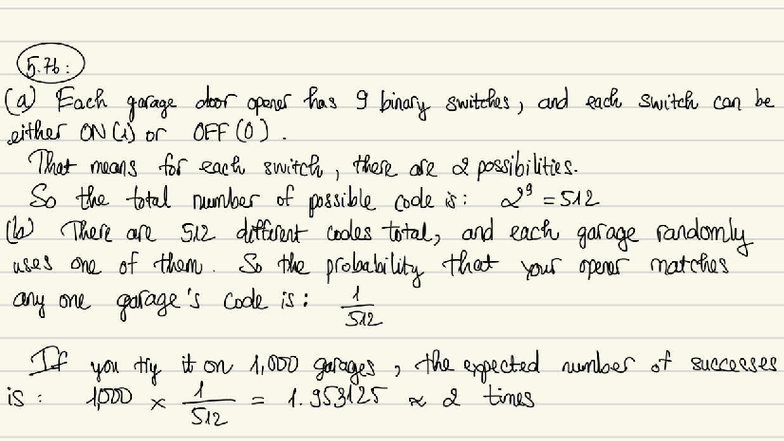 5.76:
(a) Each garage door opener has 9 binary switches, and each switch can be
either ON (1) or OFF (0).
That means for each switch, there are 2 possibilities.
So the total number of possible code is: 2⁹ = 512
(b) There are 512 different codes total, and each garage randomly
uses one of them. So the probability that your opener matches
any one garage's code is: 1/512
If you try it on 1,000 garages, the expected number of successes
is: 1,000 × 1/512 = 1.953125 ≈ 2 times